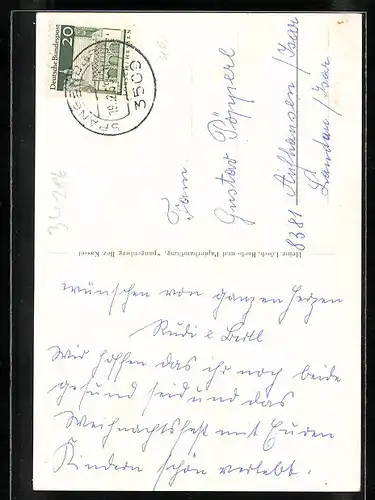 Deutsche Bundespost
20
SPANGENBERG
3509
34286
Fam.
Gustav Pöpperl
8381 Aufhausen / Isar
Landau / Isar
Heinr. Lösch, Buch- und Papierhandlung, Spangenberg Bez. Kassel
wünschen von ganzen Herzen
Rudi e Bertl
Wir hoffen das ihr noch beide
gesund seid und das
Weihnachtsfest mit Euren
Kindern schön verlebt.